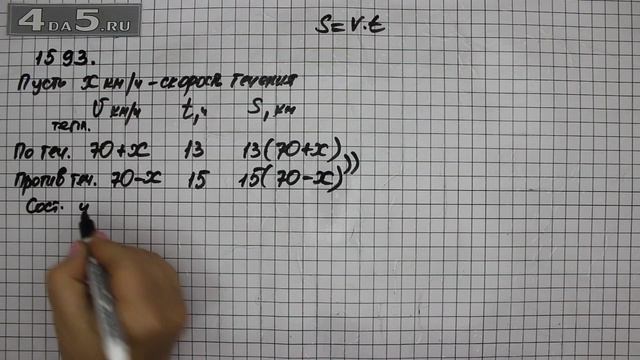 4DA5.RU
S=V·t
1593.
Пусть x км/ч - скорость течения
V км/ч t,ч S, км
тепл.
По теч. 70+x 13 13(70+x)
Против теч. 70-x 15 15(70-x)
Сост. у